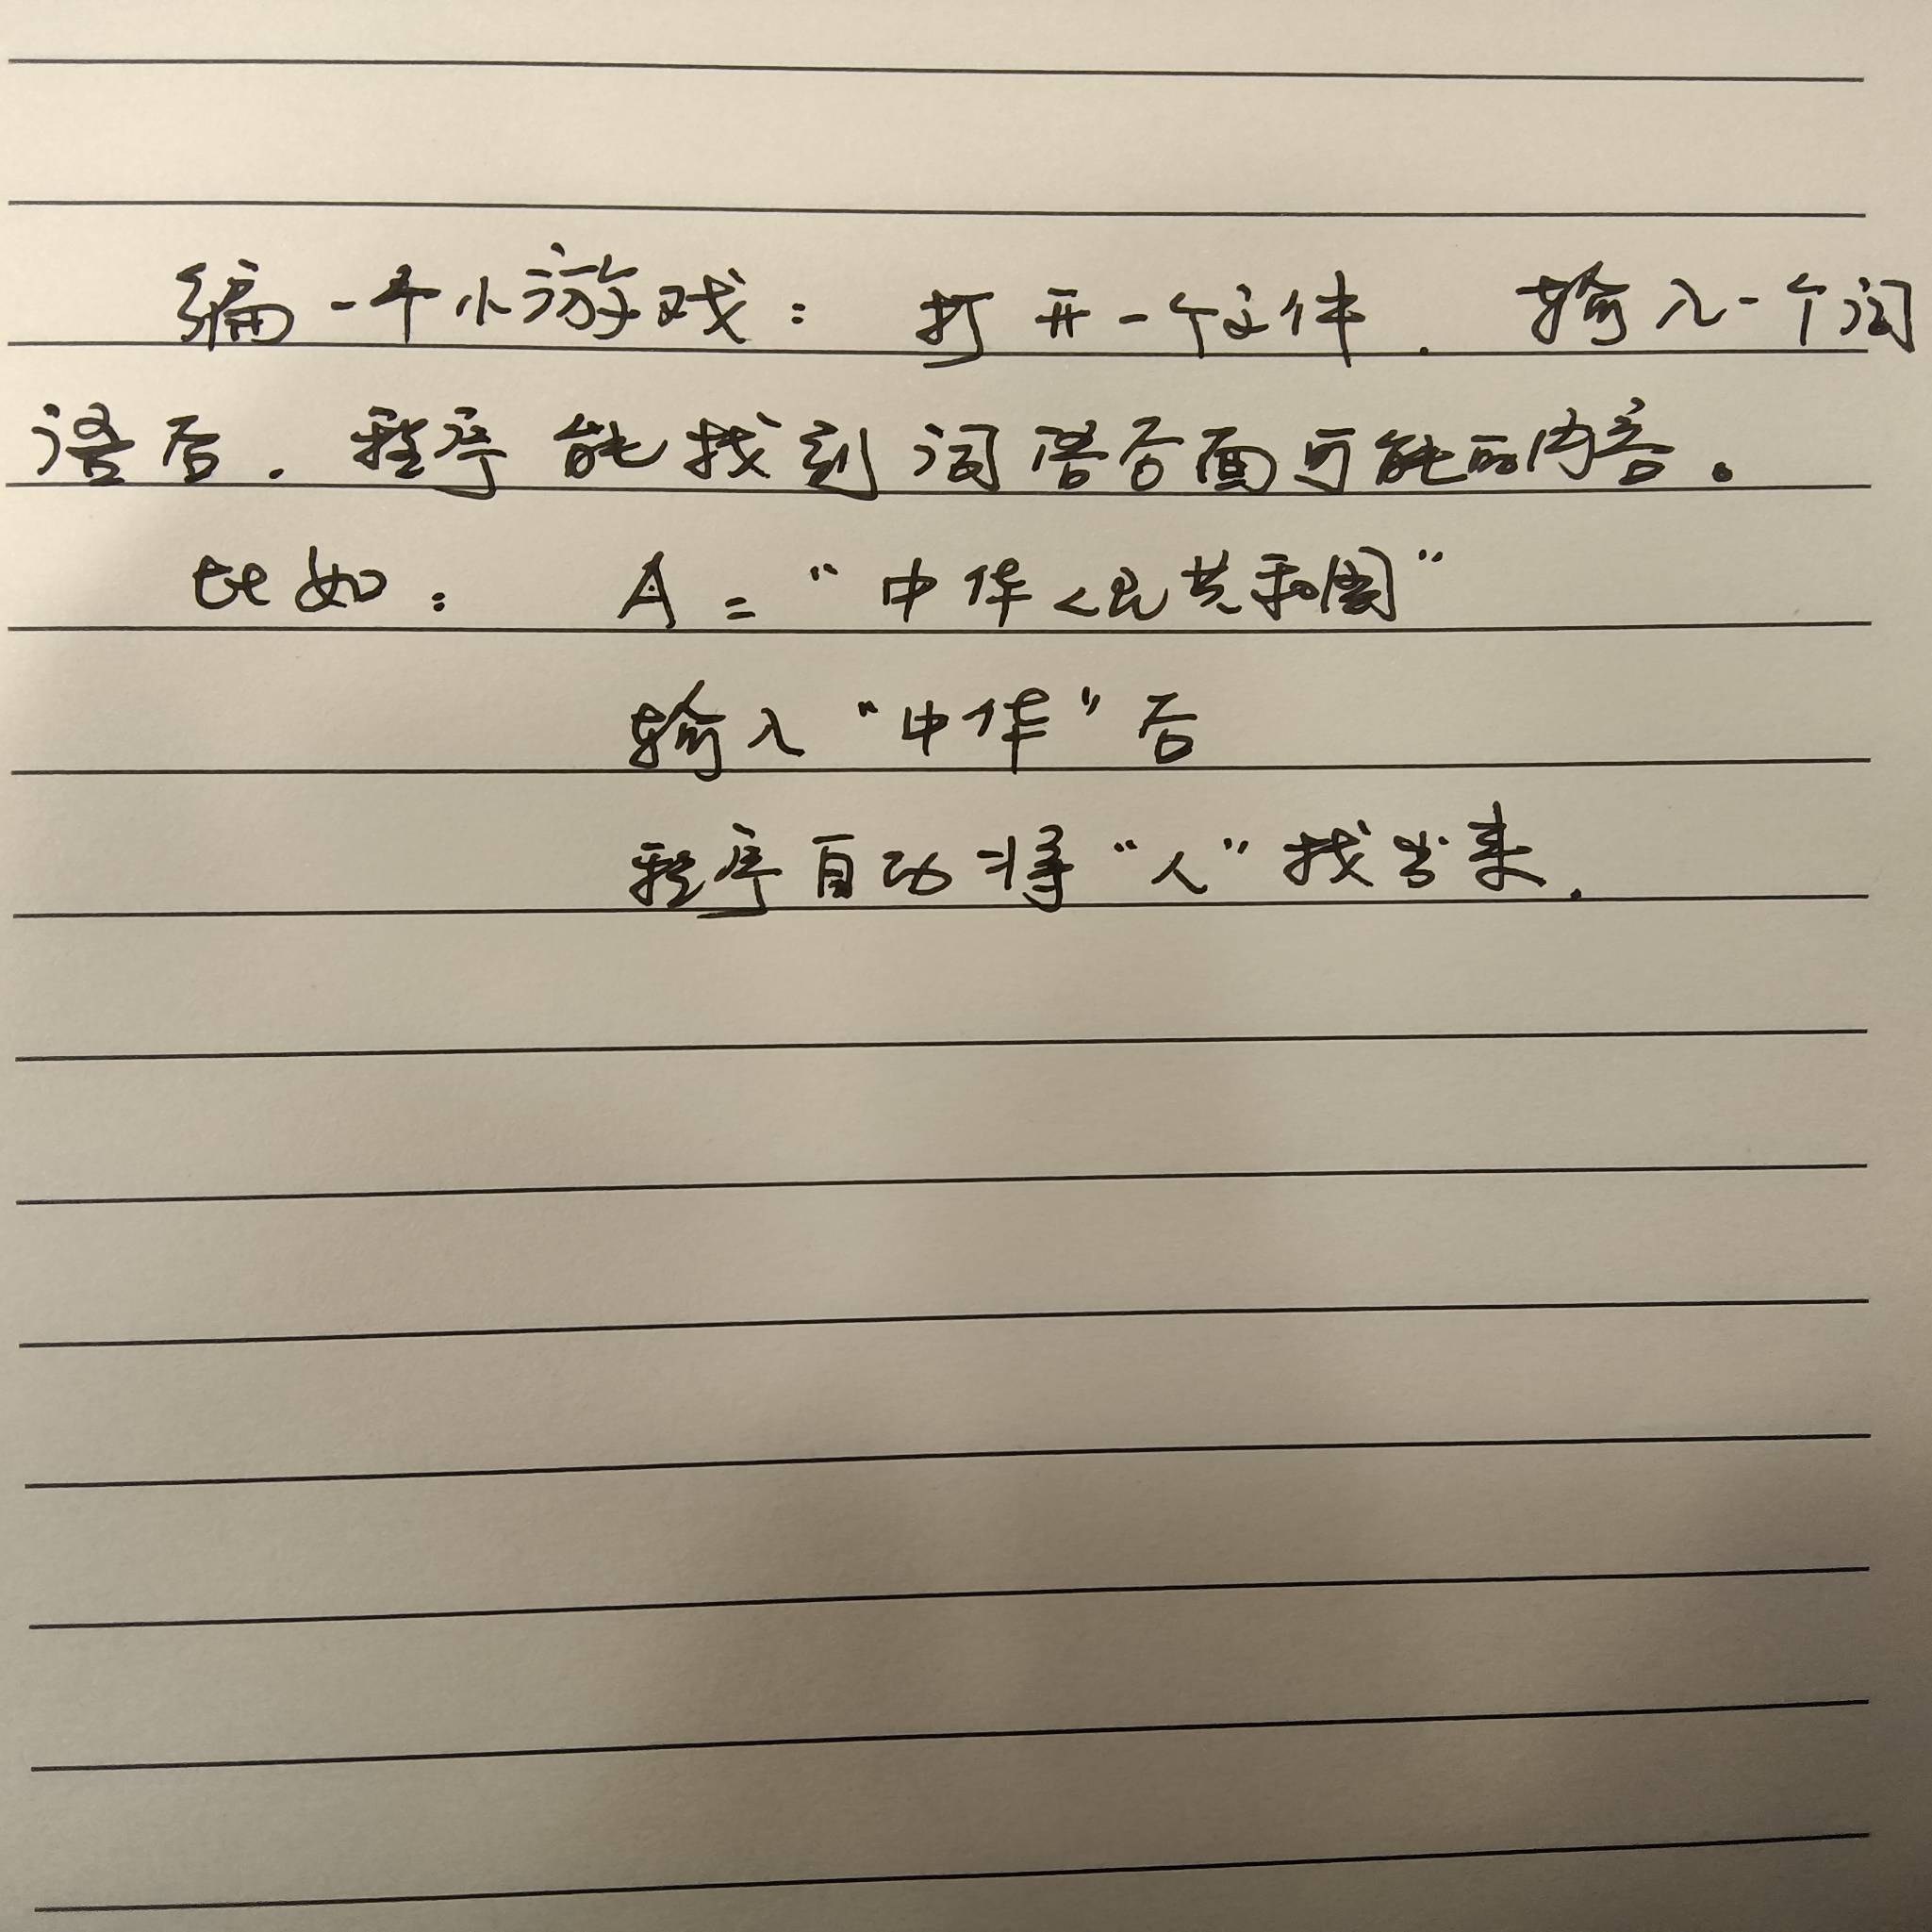 编一个小游戏：打开一个文件，输入一个词
语后，程序能找到词语后面可能的内容。
比如：A＝“中华人民共和国”
输入“中华”后
程序自动将“人”找出来.